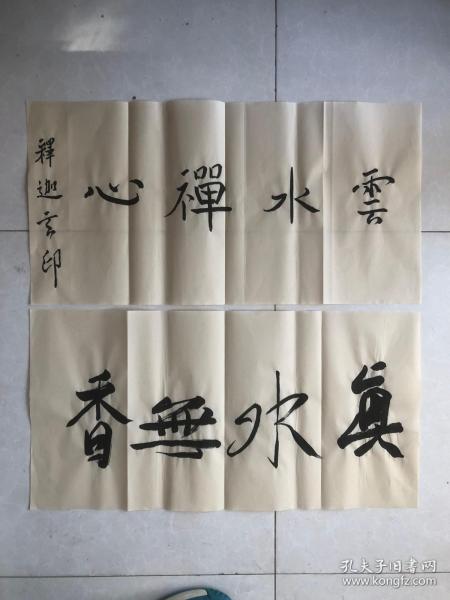 雲水禪心
釋迦玄印
真水無香
孔夫子旧书网
www.kongfz.com